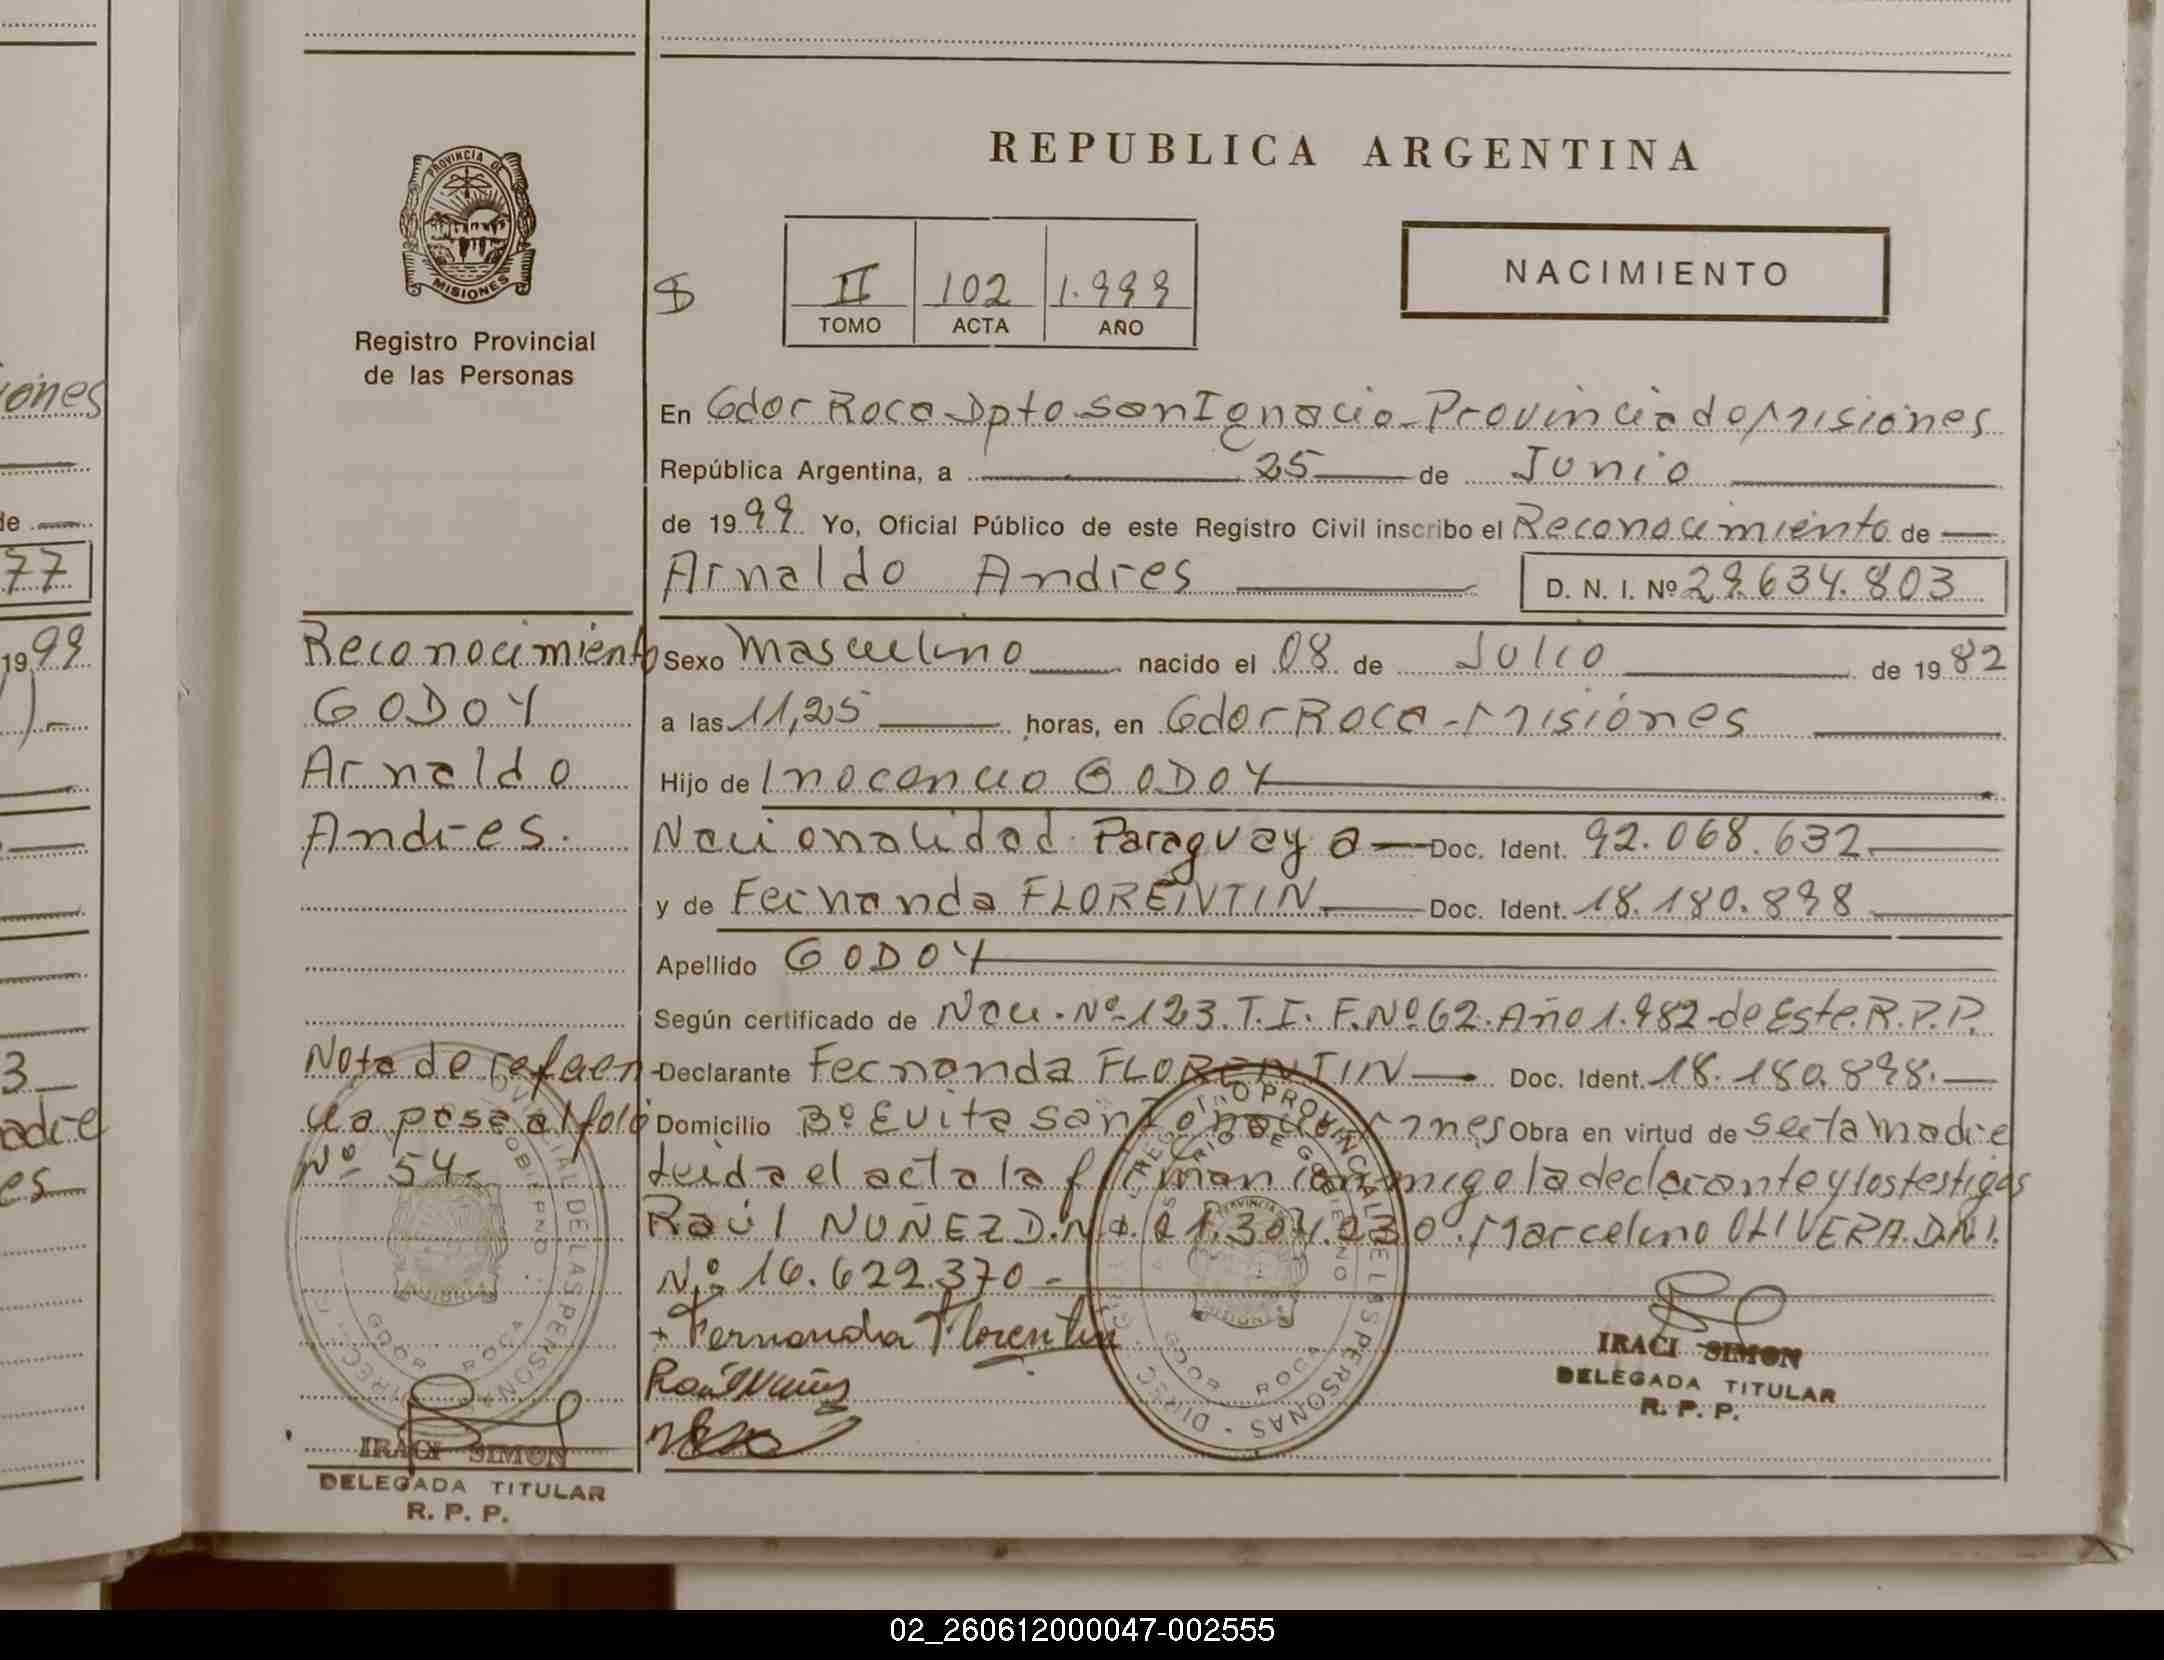 REPUBLICA ARGENTINA
PROVINCIA DE
MISIONES
Registro Provincial
de las Personas
II 102 1.999
TOMO ACTA AÑO
NACIMIENTO
En Gdor Roca Dpto San Ignacio - Provincia de Misiones
República Argentina, a 25 de Junio
de 1999 Yo, Oficial Público de este Registro Civil inscribo el Reconocimiento de
Arnaldo Andres D. N. I. Nº 29.634.803
Sexo Masculino nacido el 08 de Julio de 1982
a las 11,25 horas, en Gdor Roca - Misiones
Hijo de Inocencio GODOY
Nacionalidad Paraguaya Doc. Ident. 92.068.632
y de Fernanda FLORENTIN Doc. Ident. 18.180.898
Apellido GODOY
Según certificado de Nac. Nº 123. T. I. F. Nº 62. Año 1.982 de Este R.P.P.
Declarante Fernanda FLORENTIN Doc. Ident. 18.180.898.
Domicilio Bº Evita San Obra en virtud de ser la madre
Leida el acta la firman conmigo la declarante y los testigos
Raúl NUÑEZ D.N.I. Marcelino OLIVERA. D.N.I.
Nº 16.622.370 -
Fernanda Florentin
Raúl Nuñez
IRACI SIMON
DELEGADA TITULAR
R. P. P.
Reconocimiento
GODOY
Arnaldo
Andres.
Nota de referen
cia pasa al folio
Nº 54-
IRACI SIMON
DELEGADA TITULAR
R. P. P.
REGISTRO PROVINCIAL DE LAS PERSONAS - DIREC
GDOR ROCA
iones
de
77
1999
3
adre
es
02_260612000047-002555